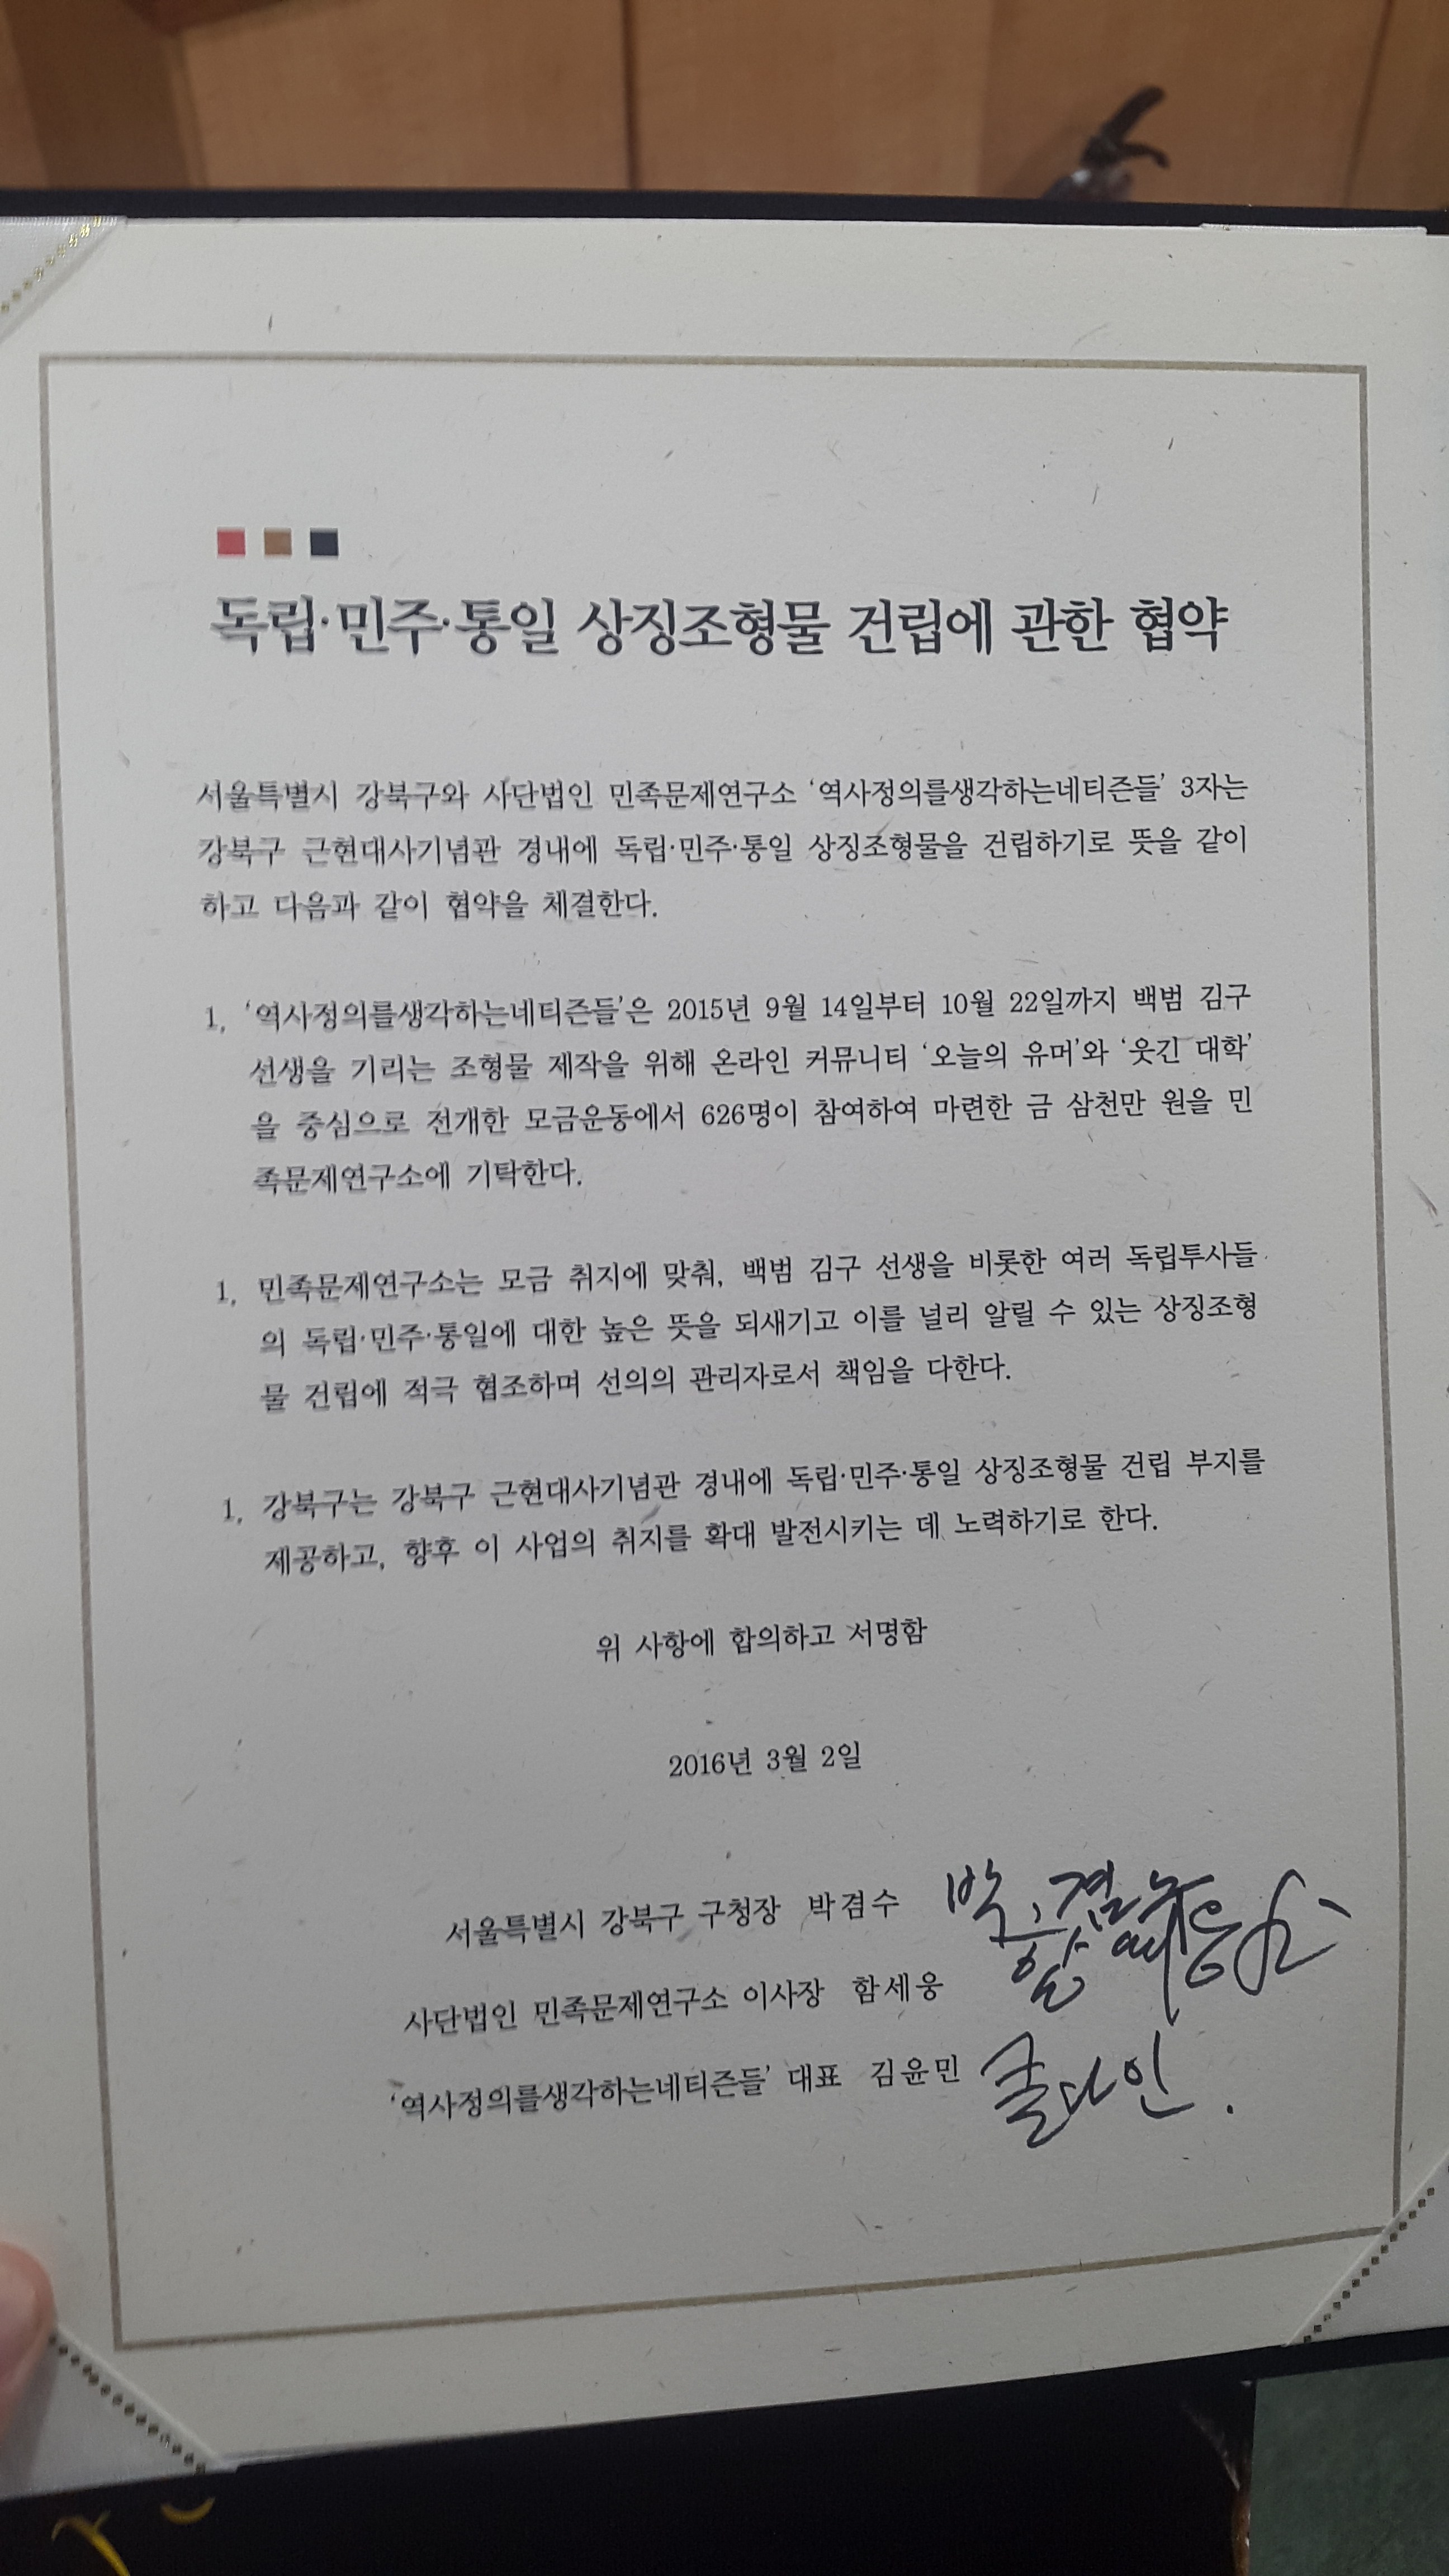 독립·민주·통일 상징조형물 건립에 관한 협약
서울특별시 강북구와 사단법인 민족문제연구소 ‘역사정의를생각하는네티즌들’ 3자는
강북구 근현대사기념관 경내에 독립·민주·통일 상징조형물을 건립하기로 뜻을 같이
하고 다음과 같이 협약을 체결한다.
1, ‘역사정의를생각하는네티즌들’은 2015년 9월 14일부터 10월 22일까지 백범 김구
선생을 기리는 조형물 제작을 위해 온라인 커뮤니티 ‘오늘의 유머’와 ‘웃긴 대학’
을 중심으로 전개한 모금운동에서 626명이 참여하여 마련한 금 삼천만 원을 민
족문제연구소에 기탁한다.
1, 민족문제연구소는 모금 취지에 맞춰, 백범 김구 선생을 비롯한 여러 독립투사들
의 독립·민주·통일에 대한 높은 뜻을 되새기고 이를 널리 알릴 수 있는 상징조형
물 건립에 적극 협조하며 선의의 관리자로서 책임을 다한다.
1, 강북구는 강북구 근현대사기념관 경내에 독립·민주·통일 상징조형물 건립 부지를
제공하고, 향후 이 사업의 취지를 확대 발전시키는 데 노력하기로 한다.
위 사항에 합의하고 서명함
2016년 3월 2일
서울특별시 강북구 구청장 박겸수 박겸수
사단법인 민족문제연구소 이사장 함세웅 함세웅
‘역사정의를생각하는네티즌들’ 대표 김윤민